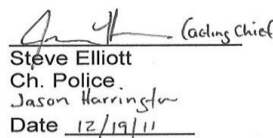 (acting chief
Steve Elliott
Ch. Police
Jason Harrington
Date 12/19/11